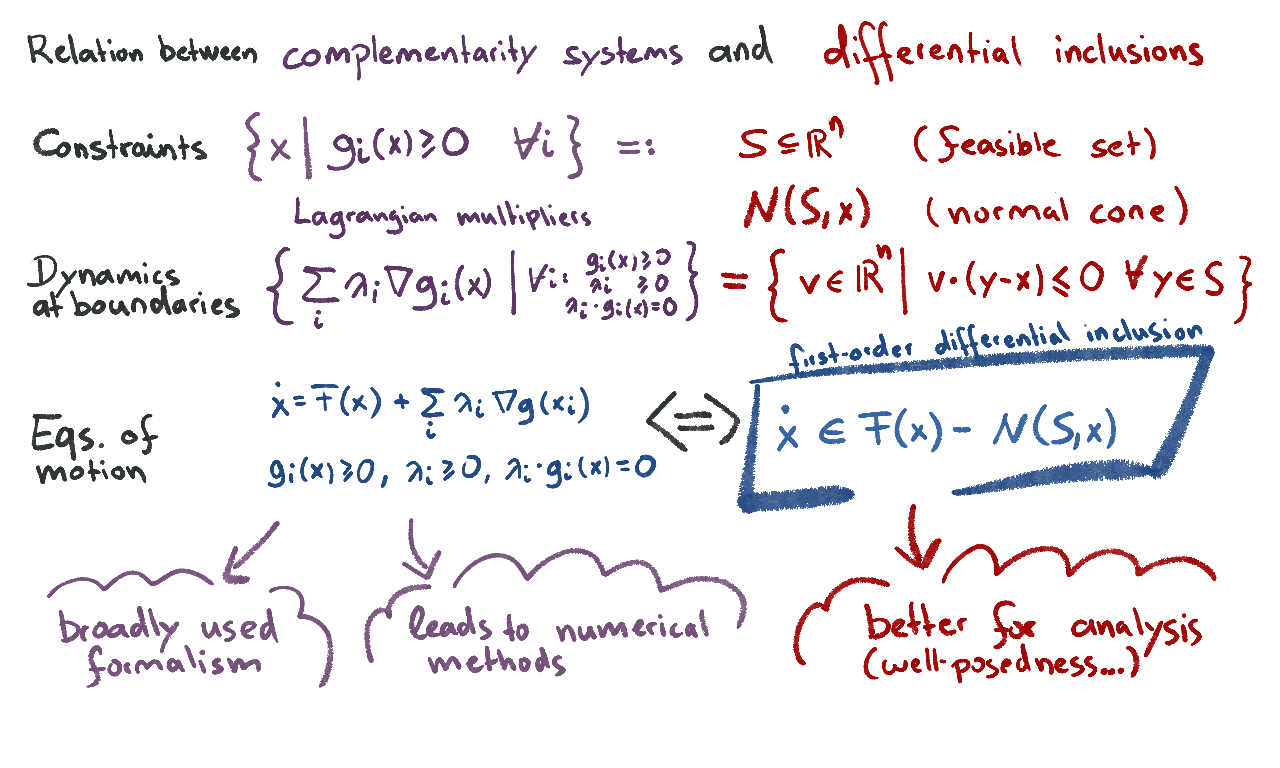 Relation between complementarity systems and differential inclusions
Constraints {x | gᵢ(x) ⩾ 0 ∀i} =: S ⊆ ℝⁿ (feasible set)
Lagrangian multipliers N(S,x) (normal cone)
Dynamics at boundaries { ∑ᵢ λᵢ ∇gᵢ(x) | ∀i: gᵢ(x) ⩾ 0 λᵢ ⩾ 0 λᵢ·gᵢ(x) = 0 } = { v ∈ ℝⁿ | v·(y-x) ⩽ 0 ∀y ∈ S }
first-order differential inclusion
Eqs. of motion
ẋ = F(x) + ∑ᵢ λᵢ ∇g(xᵢ) <=> ẋ ∈ F(x) - N(S,x)
gᵢ(x) ⩾ 0, λᵢ ⩾ 0, λᵢ·gᵢ(x) = 0
broadly used
formalism
leads to numerical
methods
better for analysis
(well-posedness...)